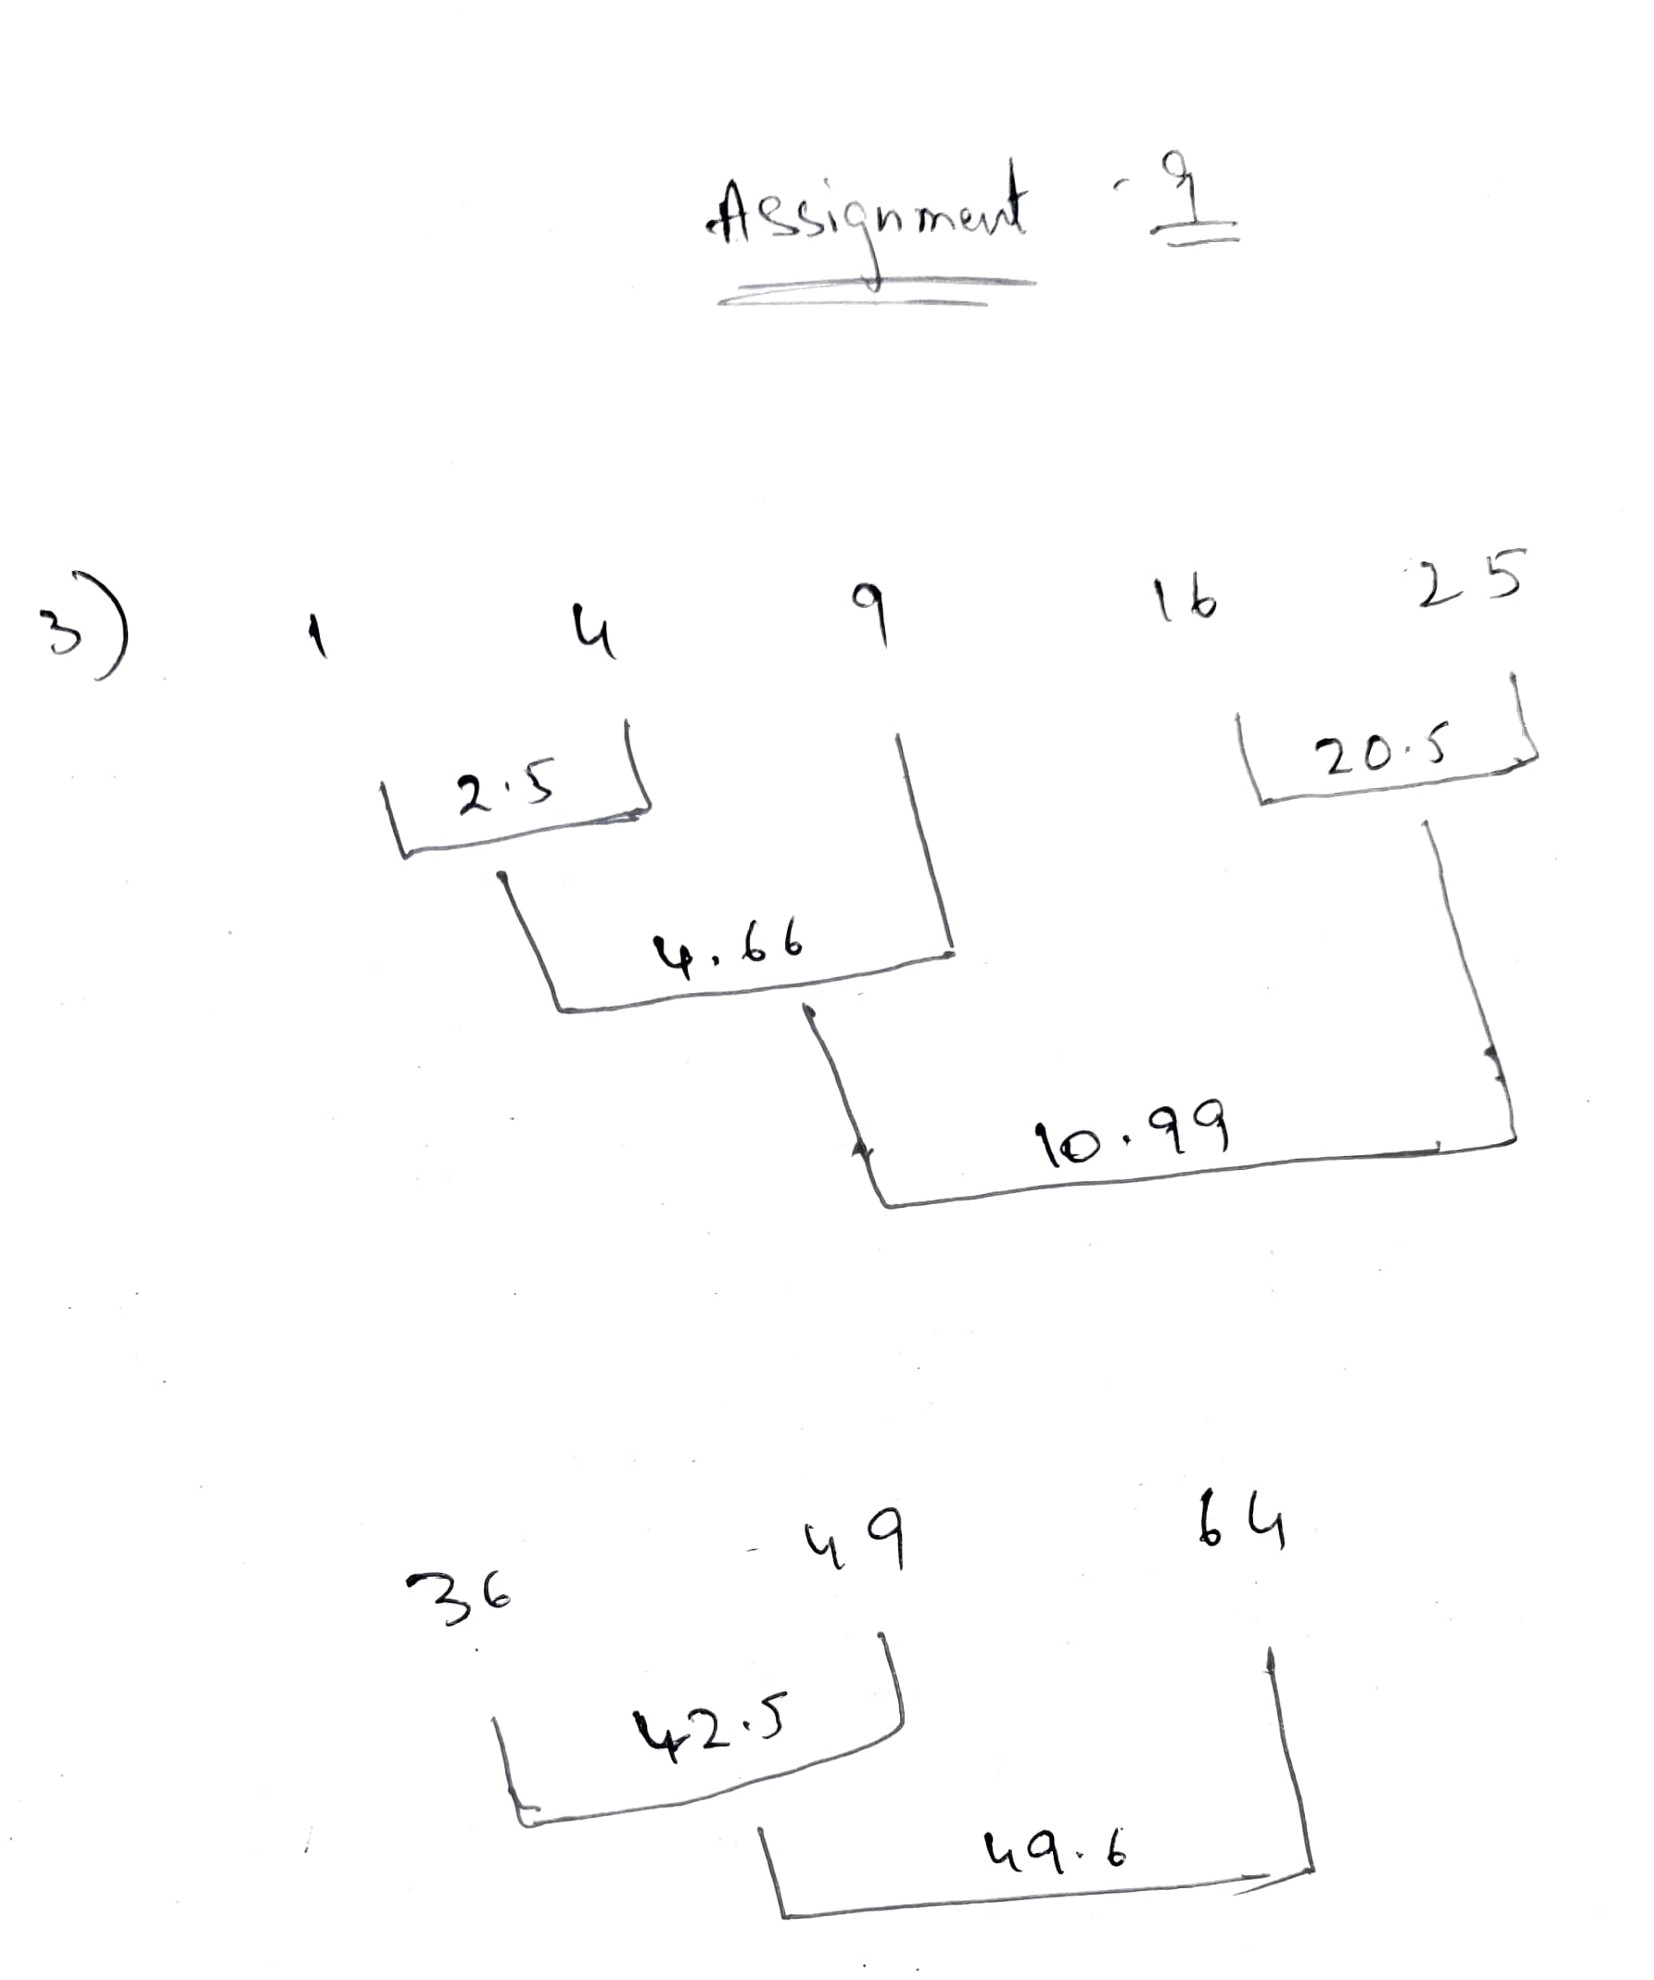 Assignment - 9
3) 1 4 9 16 25
2.5 20.5
4.66
10.99
36 49 64
42.5
49.6